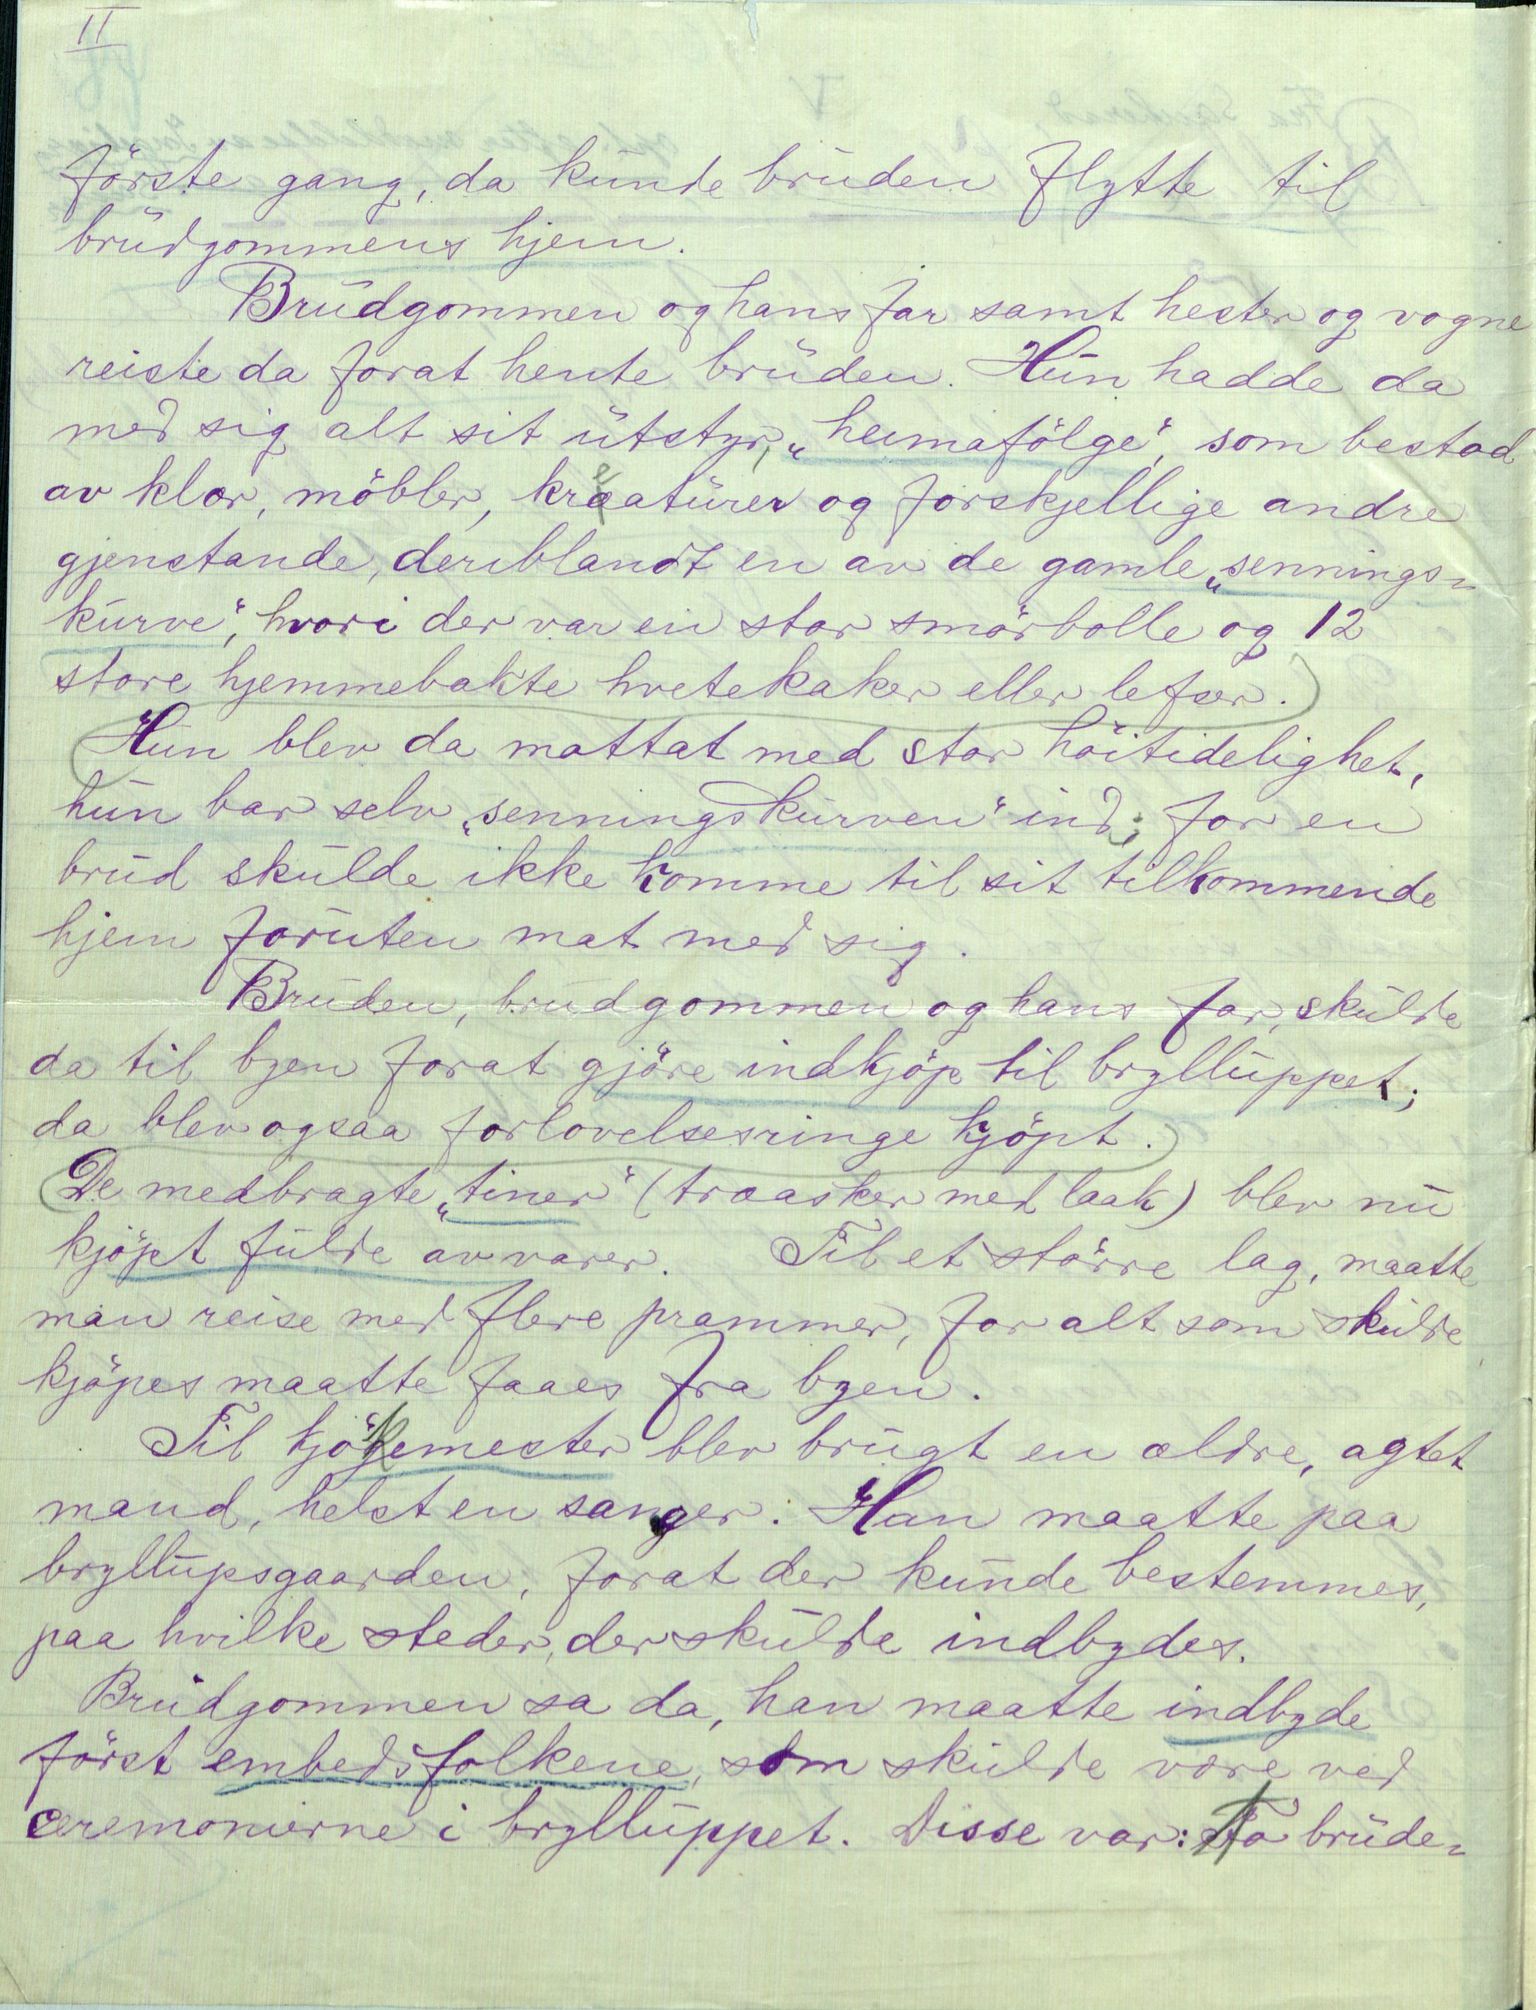 II
förste gang, da kunde bruden flytte til
brudgommens hjem.
Brudgommen og hans far samt hester og vogne
reiste da forat hente bruden. Hun hadde da
med sig alt sit utstyr, „heimafölge“, som bestod
av klær, möbler, kreaturer og forskjellige andre
gjenstande, deriblandt en av de gamle „sennings-
kurve“, hvori der var en stor smörbolle og 12
store hjemmebakte hvetekaker eller lefser.
Hun blev da mottat med stor höitidelighet,
hun bar selv „senningskurven“ ind; for en
brud skulde ikke komme til sit tilkommende
hjem foruten mat med sig.
Bruden, brudgommen og hans far, skulde
da til byen forat gjöre indkjöp til brylluppet;
da blev ogsaa forlovelsesringe kjöpt.
De medbragte „tiner“ (træasker med laak) blev nu
kjöpt fulde av varer. Til et större lag, maatte
man reise med flere prammer, for alt som skulde
kjöpes maatte faaes fra byen.
Til kjökemester blev brugt en ældre, agtet
mand, helst en sanger. Han maatte paa
bryllupsgaarden, forat der kunde bestemmes,
paa hvilke steder, der skulde indbydes.
Brudgommen sa da, han maatte indbyde
först embedsfolkene, som skulde være ved
ceremonierne i brylluppet. Disse var: To brude-